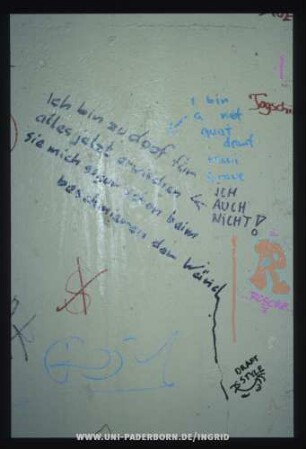 Ich bin zu doof für
alles jetzt erwischen
sie mich sogar schon beim
beschmieren der Wände
I bin
a net
quat
drauf
JCH
AUCH
NICHT!
DRAFT
STYLE
WWW.UNI-PADERBORN.DE/INGRID